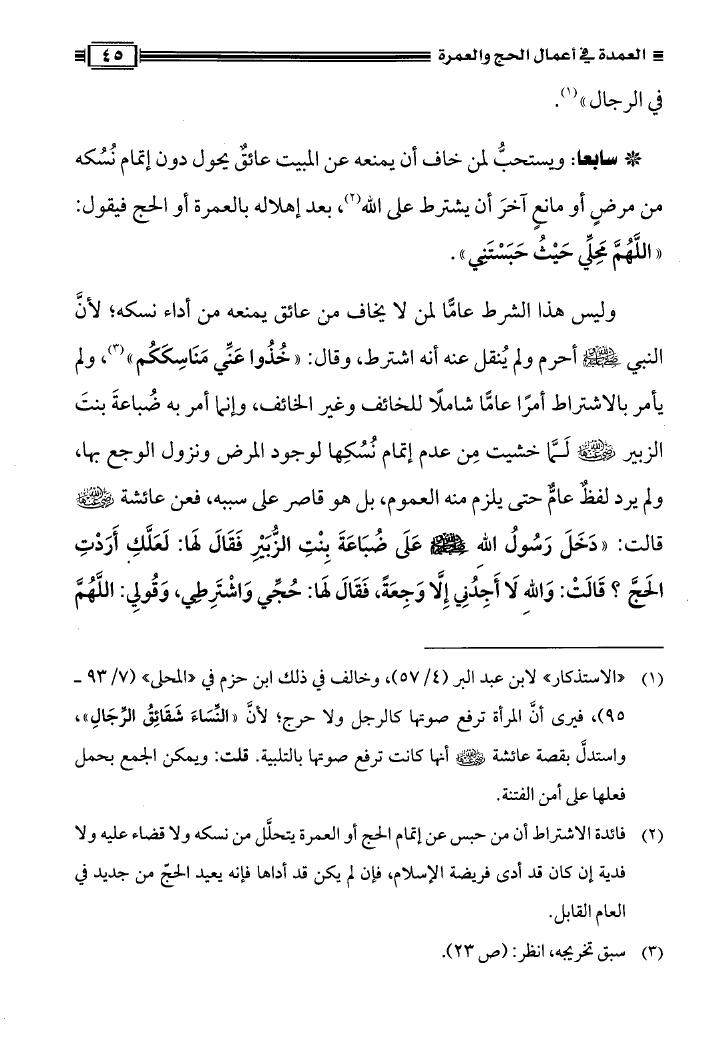 العمدة في أعمال الحج والعمرة ٤٥
في الرجال»(١).
* سابعا: ويستحبُّ لمن خاف أن يمنعه عن المبيت عائقٌ يحول دون إتمام نُسُكه
من مرضٍ أو مانعٍ آخرَ أن يشترط على الله(٢)، بعد إهلاله بالعمرة أو الحج فيقول:
«اللَّهُمَّ مَحِلِّي حَيْثُ حَبَسْتَنِي».
وليس هذا الشرط عامًّا لمن لا يخاف من عائق يمنعه من أداء نسكه؛ لأنَّ
النبي ﷺ أحرم ولم يُنقل عنه أنه اشترط، وقال: «خُذُوا عَنِّي مَنَاسِكَكُم»(٣)، ولم
يأمر بالاشتراط أمرًا عامًّا شاملًا للخائف وغير الخائف، وإنما أمر به ضُباعةَ بنتَ
الزبير رضي الله عنها لَـمَّا خشيت مِن عدم إتمام نُسُكِها لوجود المرض ونزول الوجع بها،
ولم يرد لفظٌ عامٌّ حتى يلزم منه العموم، بل هو قاصر على سببه، فعن عائشة رضي الله عنها
قالت: «دَخَلَ رَسُولُ اللهِ ﷺ عَلَى ضُبَاعَةَ بِنْتِ الزُّبَيْرِ فَقَالَ لَهَا: لَعَلَّكِ أَرَدْتِ
الحَجَّ ؟ قَالَتْ: وَاللهِ لَا أَجِدُنِي إِلَّا وَجِعَةً، فَقَالَ لَهَا: حُجِّي وَاشْتَرِطِي، وَقُولِي: اللَّهُمَّ
(١) «الاستذكار» لابن عبد البر (٤/ ٥٧)، وخالف في ذلك ابن حزم في «المحلى» (٧/ ٩٣ ـ
٩٥)، فيرى أنَّ المرأة ترفع صوتها كالرجل ولا حرج؛ لأنَّ «النِّسَاءَ شَقَائِقُ الرِّجَالِ»،
واستدلَّ بقصة عائشة رضي الله عنها أنها كانت ترفع صوتها بالتلبية. قلت: ويمكن الجمع بحمل
فعلها على أمن الفتنة.
(٢) فائدة الاشتراط أن من حبس عن إتمام الحج أو العمرة يتحلَّل من نسكه ولا قضاء عليه ولا
فدية إن كان قد أدى فريضة الإسلام، فإن لم يكن قد أداها فإنه يعيد الحجّ من جديد في
العام القابل.
(٣) سبق تخريجه، انظر: (ص ٢٣).